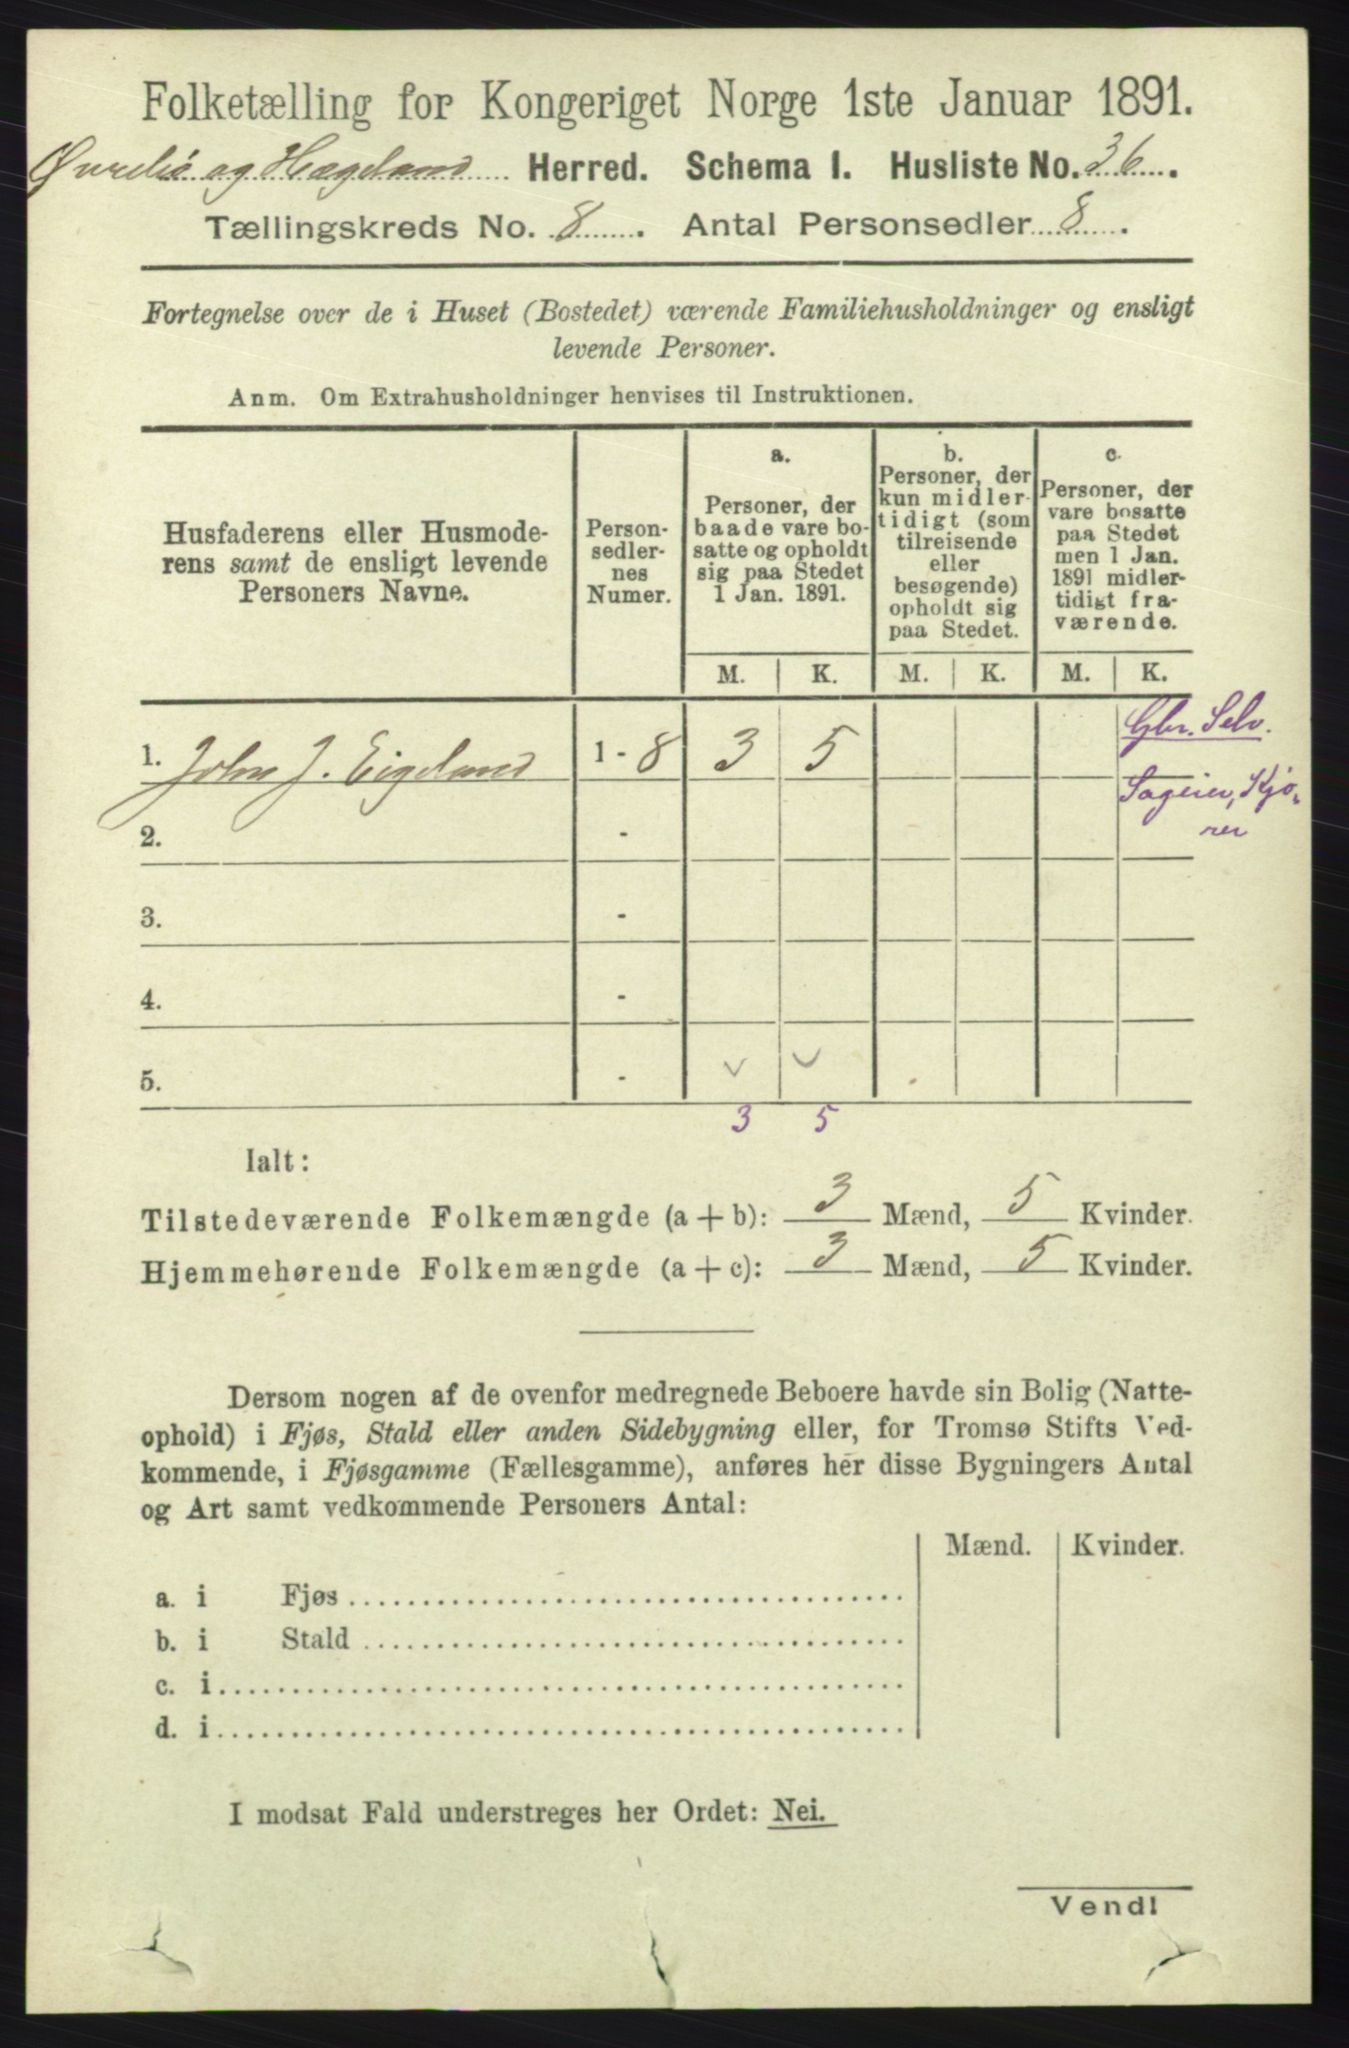 Folketælling for Kongeriget Norge 1ste Januar 1891.
Øvrebø og Hægeland Herred. Schema I. Husliste No. 36.
Tællingskreds No. 8. Antal Personsedler 8.
Fortegnelse over de i Huset (Bostedet) værende Familiehusholdninger og ensligt
levende Personer.
Anm. Om Extrahusholdninger henvises til Instruktionen.
Husfaderens eller Husmode-
rens samt de ensligt levende
Personers Navne.
Person-
sedler-
nes
Numer.
a.
Personer, der
baade vare bo-
satte og opholdt
sig paa Stedet
1 Jan. 1891.
b.
Personer, der
kun midler-
tidigt (som
tilreisende
eller
besøgende)
opholdt sig
paa Stedet.
c.
Personer, der
vare bosatte
paa Stedet
men 1 Jan.
1891 midler-
tidigt fra-
værende.
M. K. M. K. M. K.
1. John J. Eigeland 1 - 8 3 5
Gbr. Selv.
Sageier, Kjø-
rer
2. -
3. -
4. -
5. -
3 5
Ialt:
Tilstedeværende Folkemængde (a + b): 3 Mænd, 5 Kvinder.
Hjemmehørende Folkemængde (a + c): 3 Mænd, 5 Kvinder.
Dersom nogen af de ovenfor medregnede Beboere havde sin Bolig (Natte-
ophold) i Fjøs, Stald eller anden Sidebygning eller, for Tromsø Stifts Ved-
kommende, i Fjøsgamme (Fællesgamme), anføres her disse Bygningers Antal
og Art samt vedkommende Personers Antal:
Mænd. Kvinder.
a. i Fjøs
b. i Stald
c. i
d. i
I modsat Fald understreges her Ordet: Nei.
Vend!